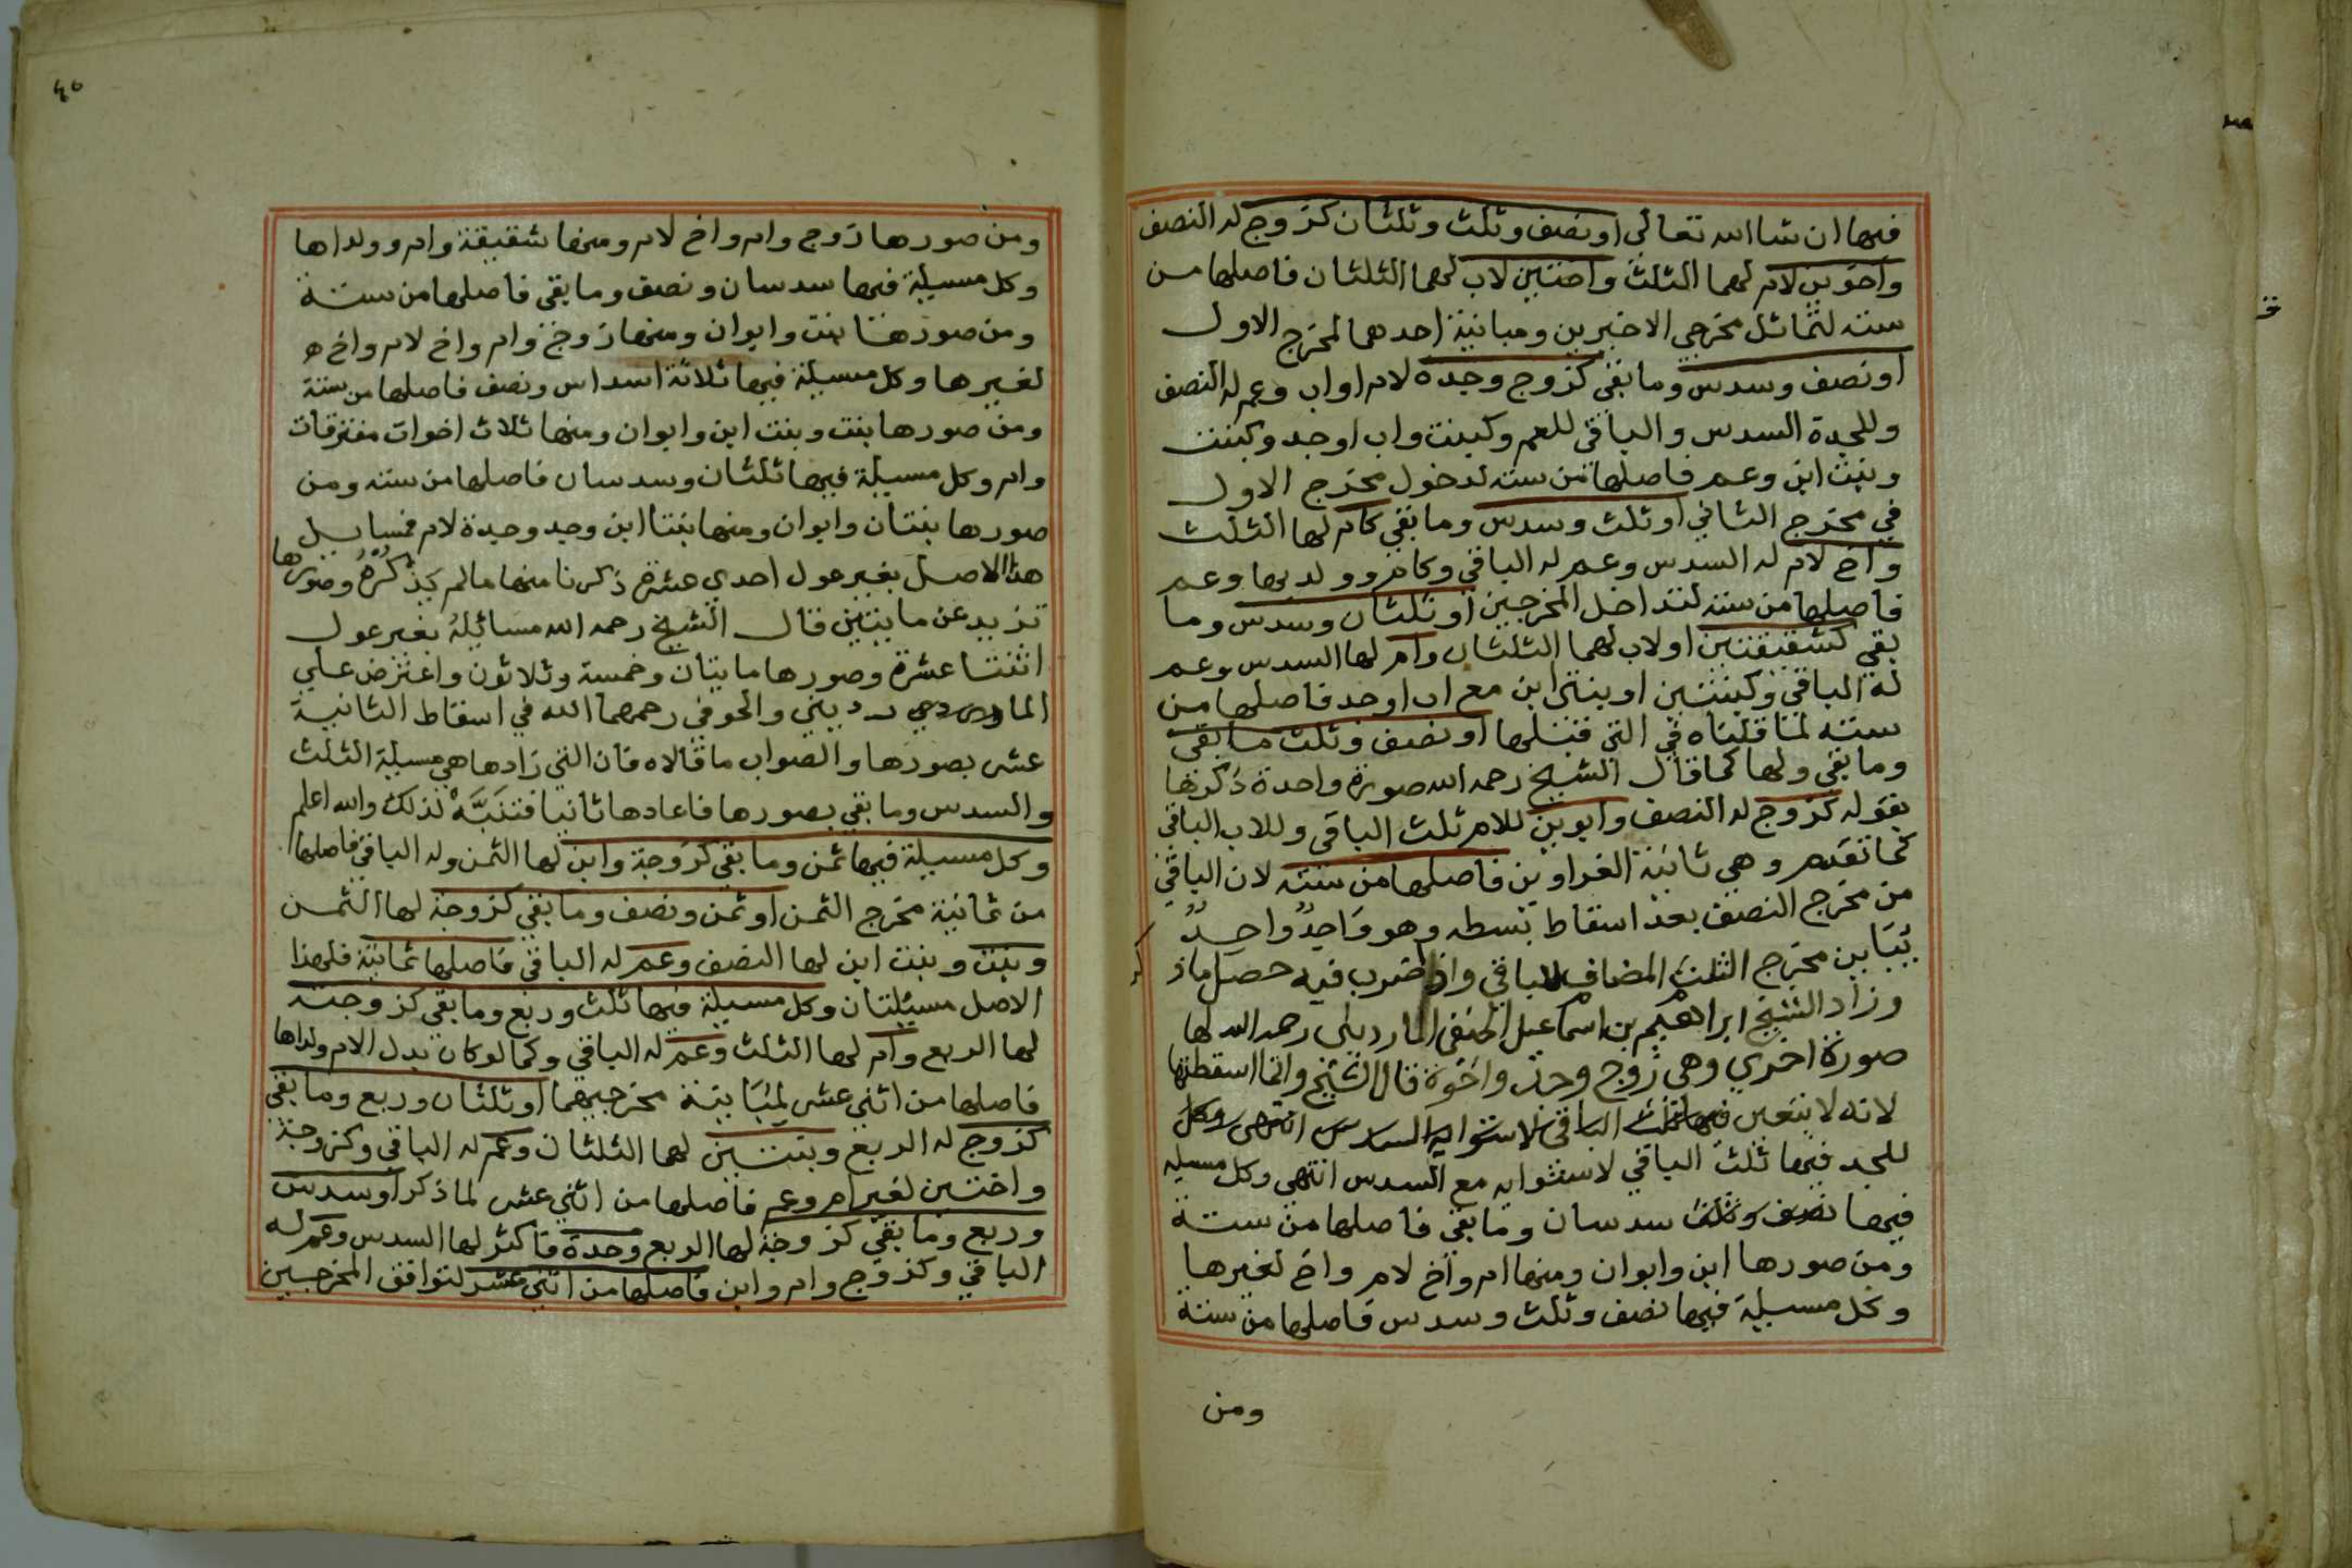 فيها ان شا الله تعالى او نصف وثلث وثلثان كزوج له النصف
واخوين لام لهما الثلث واختين لاب لهما الثلثان فاصلها من
سته لتماثل مخرجي الاخيرين ومباينة احدهما لمخرج الاول
او نصف وسدس وما بقي كزوج وجدة لام او اب وعم له النصف
وللجدة السدس والباقي للعم وكبنت واب او جد وكبنت
وبنت ابن وعم فاصلها من سته لدخول مخرج الاول
في مخرج الثاني او ثلث وسدس وما بقي كام لها الثلث
واخ لام له السدس وعم له الباقي وكام وولديها وعم
فاصلها من سته لتداخل المخرجين او ثلثان وسدس وما
بقي كشقيقتين او لاب لهما الثلثان وام لها السدس وعم
له الباقي وكبنتين او بنتي ابن مع اب او جد فاصلها من
سته لما قلناه في التي قبلها او نصف وثلث ما بقي
وما بقي ولها كما قال الشيخ رحمه الله صورة واحدة ذكرتها
بقوله كزوج له النصف وابوين للام ثلث الباقي وللاب الباقي
كما تقدم وهي ثانية الغراوين فاصلها من سته لان الباقي
من مخرج النصف بعد اسقاط بسطه وهو واحد واحد
يباين مخرج الثلث المضاف للباقي واذا ضرب فيه حصل ما ذكر
وزاد الشيخ ابراهيم بن اسماعيل الحنفي المارديني رحمه الله لها
صورة اخري وهي زوج وجد واخوة قال الشيخ وانما اسقطتها
لانه لا يتعين فيها ثلث الباقي لاستوايه السدس انتهى وكل
للجد فيها ثلث الباقي لاستوايه مع السدس انتهى وكل مسيلة
فيها نصف وثلث سدسان وما بقي فاصلها من ستة
ومن صورها ابن وابوان ومنها ام واخ لام واخ لغيرها
وكل مسيلة فيها نصف وثلث وسدس فاصلها من ستة
ومن
ومن صورها زوج وام واخ لام ومنها شقيقة وام وولداها
وكل مسيلة فيها سدسان ونصف وما بقي فاصلها من ستة
ومن صورها بنت وابوان ومنها زوج وام واخ لام واخ
لغيرها وكل مسيلة فيها ثلاثة اسداس ونصف فاصلها من ستة
ومن صورها بنت وبنت ابن وابوان ومنها ثلاث اخوات مفترقات
وام وكل مسيلة فيها ثلثان وسدسان فاصلها من سته ومن
صورها بنتان وابوان ومنها بنتا ابن وجد وجدة لام فمسايل
هذا الاصل بغير عول احدي عشرة ذكرنا منها ما لم يذكره وصورها
تزيد عن مايتين قال الشيخ رحمه الله مسائله بغير عول
اثنتا عشرة وصورها مايتان وخمسة وثلاثون واعترض علي
المارديني والحوفي رحمهما الله في اسقاط الثانية
عشر بصورها والصواب ما قالاه فان التي زادها هي مسيلة الثلث
والسدس وما بقي بصورها فاعادها ثانيا فتنبه لذلك والله اعلم
وكل مسيلة فيها ثمن وما بقي كزوجة وابن لها الثمن وله الباقي فاصلها
من ثمانية مخرج الثمن او ثمن ونصف وما بقي كزوجة لها الثمن
وبنت وبنت ابن لها النصف وعم له الباقي فاصلها ثمانية فلهذا
الاصل مسيلتان وكل مسيلة فيها ثلث وربع وما بقي كزوجة
لها الربع وام لها الثلث وعم له الباقي وكما لو كان بدل الام ولداها
فاصلها من اثني عشر لمباينة مخرجيهما او ثلثان وربع وما بقي
كزوج له الربع وبنتين لهما الثلثان وعم له الباقي وكزوجة
واختين لغير ام وعم فاصلها من اثني عشر لما ذكر او سدس
وربع وما بقي كزوجة لها الربع وجدة فاكثر لها السدس وعم له
الباقي وكزوج وام وابن فاصلها من اثني عشر لتوافق المخرجين